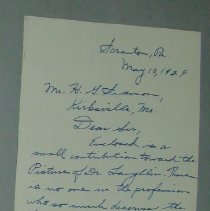 Scranton, Pa
May 10, 1929
Mr. H. G. Swanson,
Kirksville, Mo.
Dear Sir,
Enclosed is a
small contribution toward the
Picture of Dr. Laughlin. There
is no one in the profession
who so much deserves the